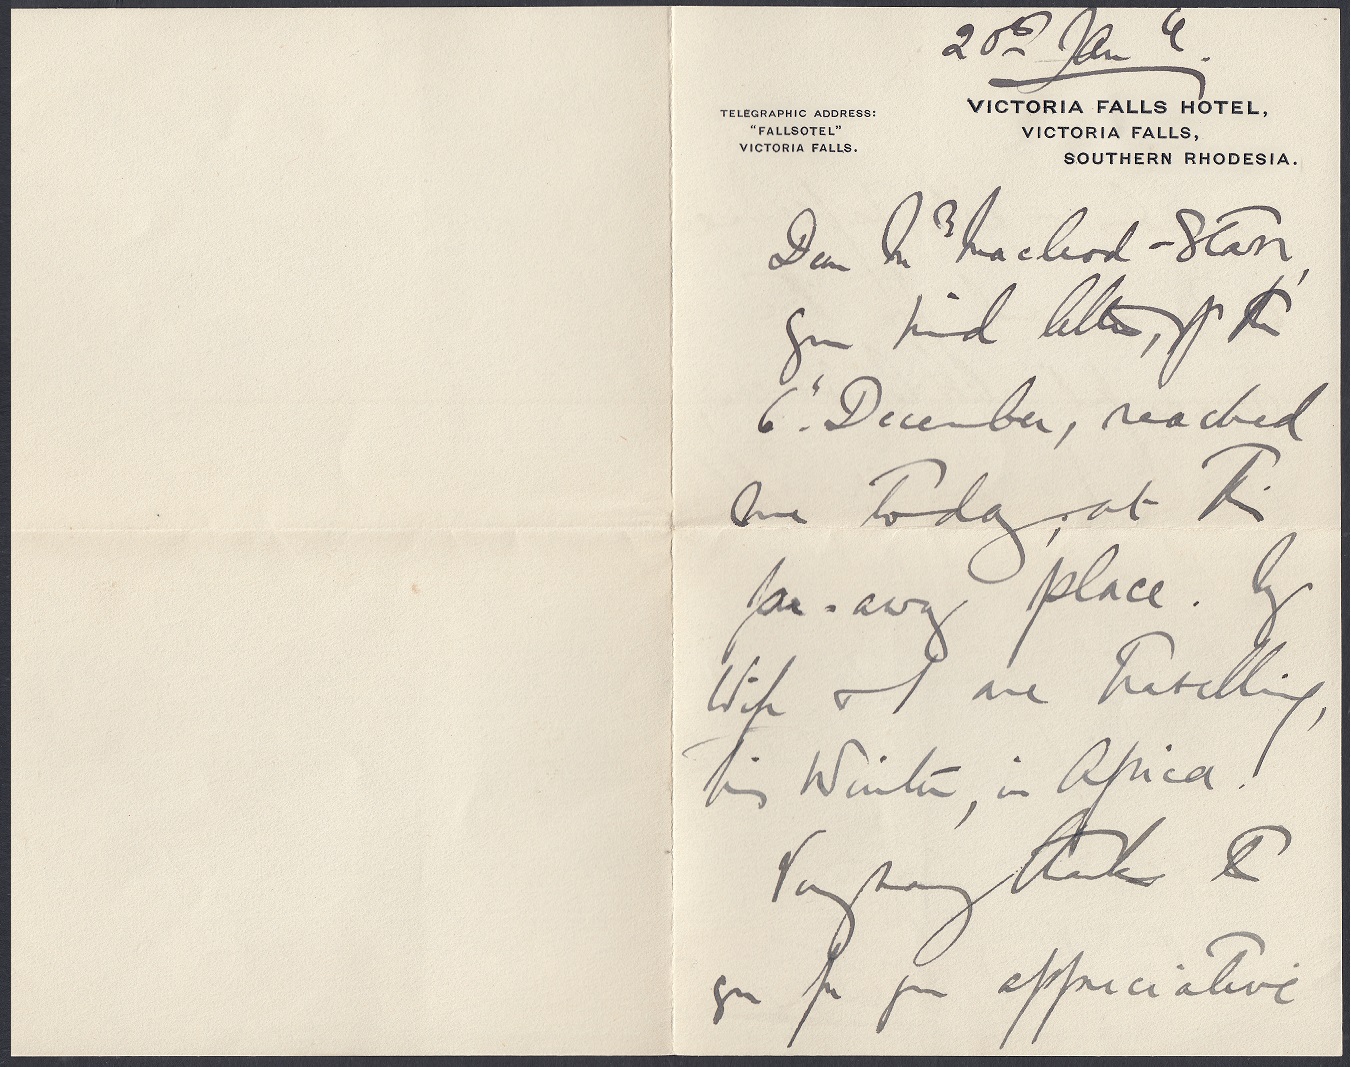 20th Jan
TELEGRAPHIC ADDRESS:
"FALLSOTEL"
VICTORIA FALLS.
VICTORIA FALLS HOTEL,
VICTORIA FALLS,
SOUTHERN RHODESIA.
Dear Mrs Macleod-Starr,
your kind letter, of the
6th December, reached
me today, at this
far-away place. My
Wife & I are travelling,
this Winter, in Africa.
Very many thanks to
you for your appreciative